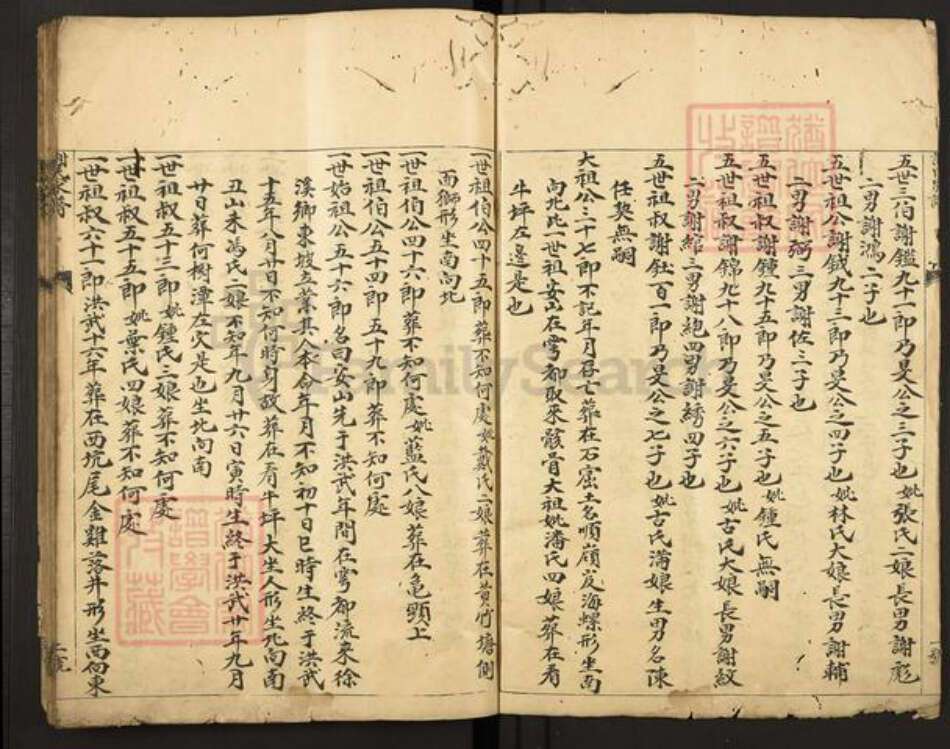 五世三伯謝鑑九十一郎乃旻公之三子也妣張氏二娘長男謝彪
二男謝鴻二子也
五世祖公謝鉞九十三郎乃旻公之四子也妣林氏大娘長男謝輔
二男謝弼三男謝佐三子也
五世祖叔謝鍾九十五郎乃旻公之五子也妣鍾氏無嗣
五世祖叔謝錦九十八郎乃旻公之六子也妣古氏大娘長男謝紋
二男謝綰三男謝絶四男謝綉四子也
五世祖叔謝鈺一百一郎乃旻公之七子也妣古氏滿娘生男名陳
任契無嗣
大祖公三十七郎不記年月存亡葬在石窑土名順嶺岌海螺形坐南
向北比一世祖安山在雩都取來骸骨大祖妣潘氏四娘葬在看
牛坪左邊是也
一世祖伯公四十五郎葬不知何處妣戴氏二娘葬在黄竹塘側
面獅形坐南向北
一世祖伯公四十六郎葬不知何處妣藍氏八娘葬在亀頭上
一世祖伯公五十四郎五十九郎葬不知何處
一世始祖公五十六郎名曰安山先于洪武年間在雩都流來徐
溪鄉東坡立業其人本命年月不知初十日巳時生終于洪武
十五年八月廿日不知何時身故葬在看牛坪大坐人形坐北向南
丑山未馮氏二娘不知年九月廿六日寅時生終于洪武廿年九月
廿日葬何樹潭左穴是也坐北向南
一世祖叔五十三郎妣鍾氏三娘葬不知何處
一世祖叔五十五郎妣葉氏四娘葬不知何處
一世祖叔六十一郎洪武十六年葬在西坑尾金雞落井形坐西向東
FamilySearch